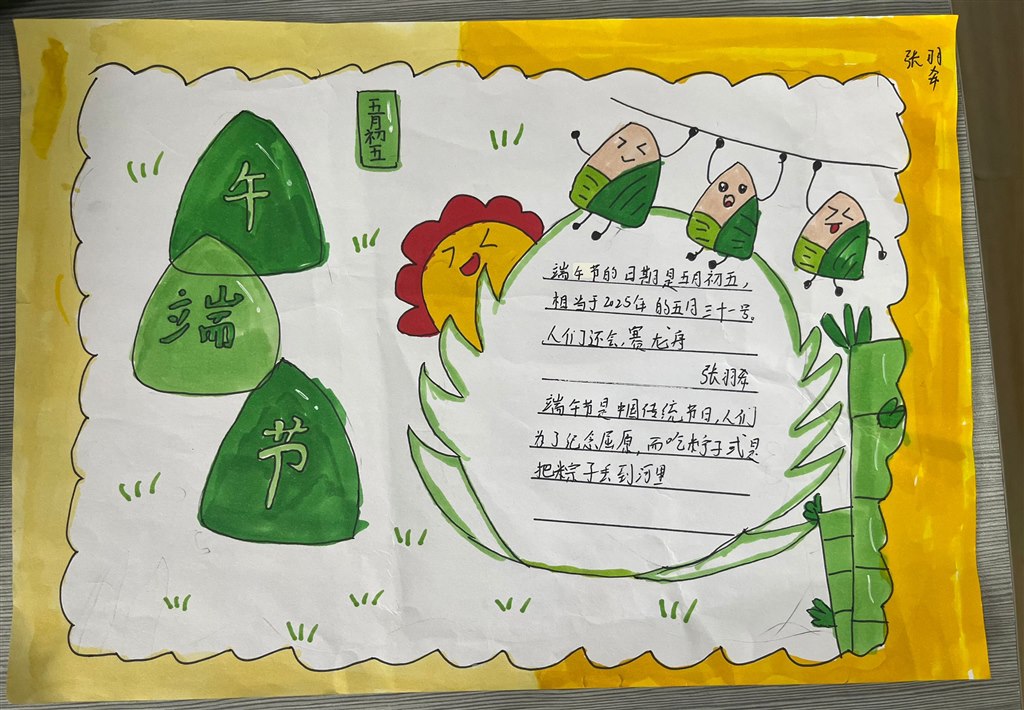 张羽
希
五月初五
午
端
节
端午节的日期是五月初五，
相当于2025年的五月三十一号。
人们还会，赛龙舟
张羽希
端午节是中国传统节日，人们
为了纪念屈原，而吃粽子或是
把粽子丢到河里